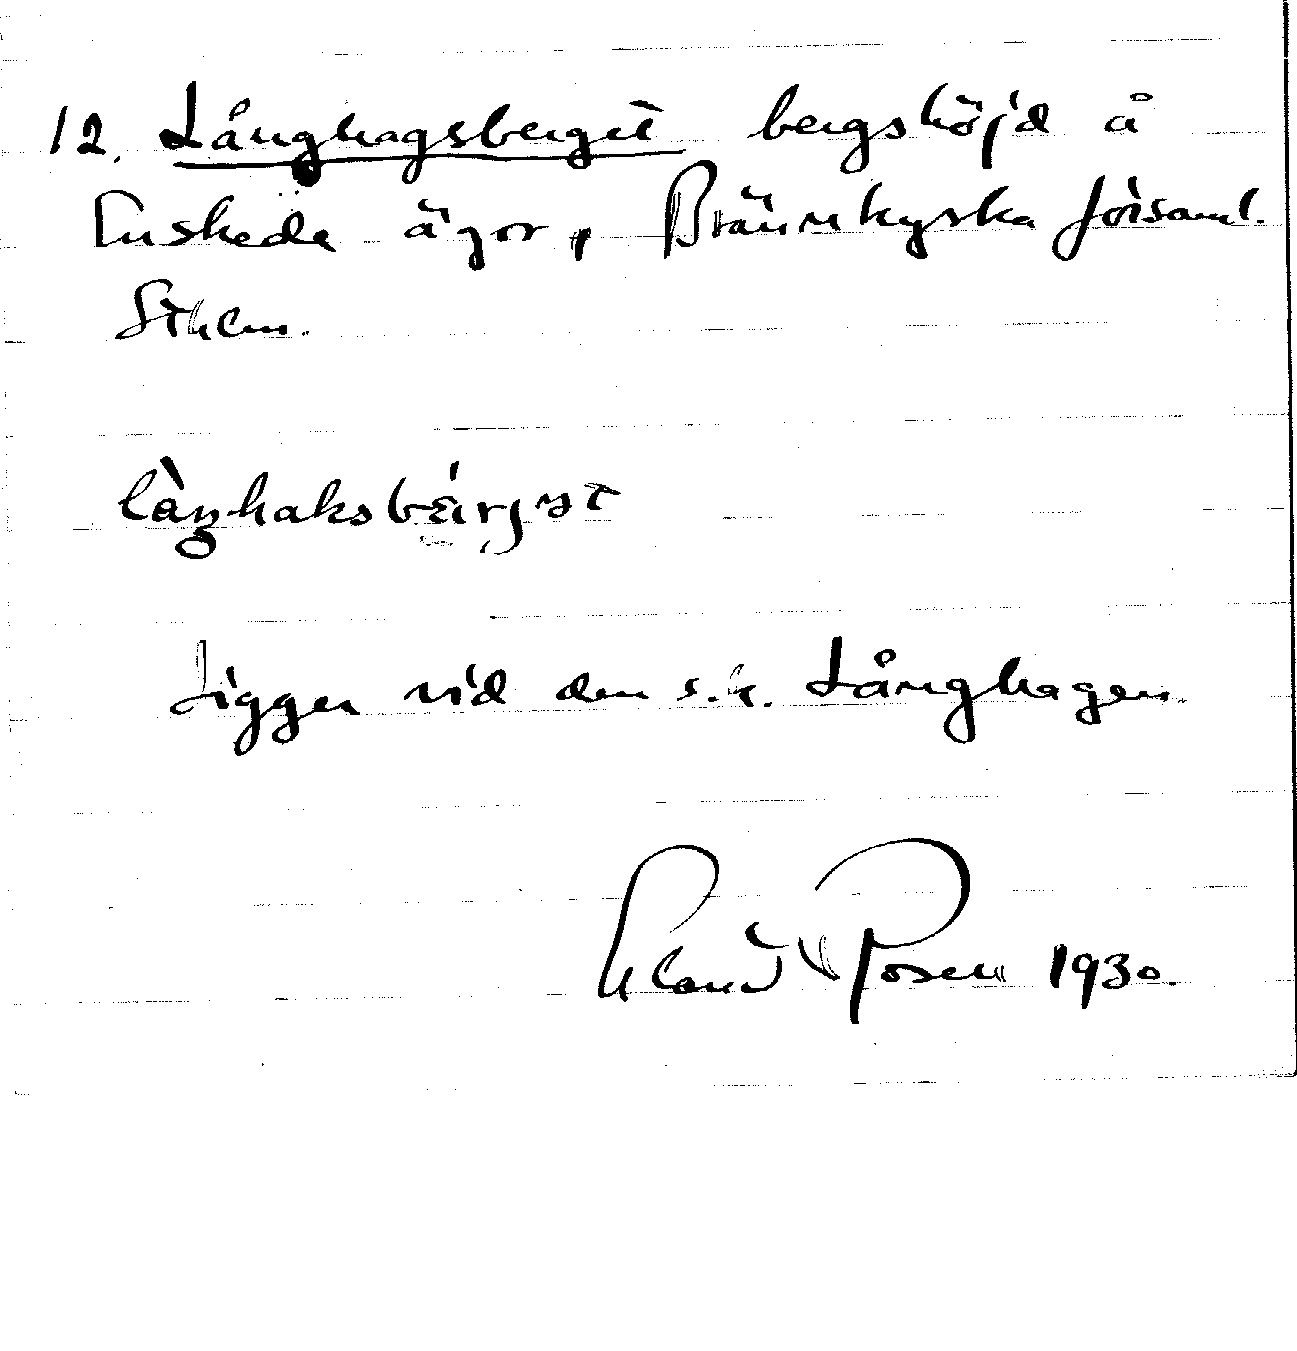 12. Långhagsberget bergshöjd å
Enskede ägor, Brännkyrka församl.
Sthlm.
Ligger vid den s.k. Långhagen.
Rosen 1930.